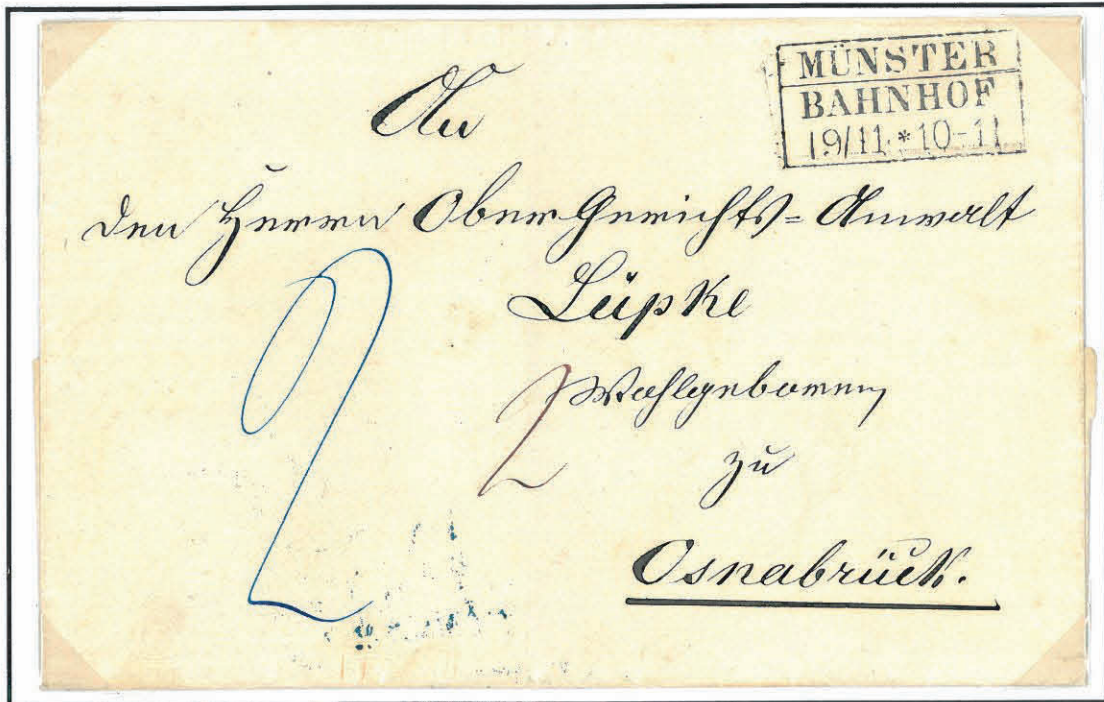 MÜNSTER
BAHNHOF
19/11 * 10-11
An
den Herrn Ober Gerichts=Anwalt
Lüpke
Wohlgeboren
zu
Osnabrück.
2
2